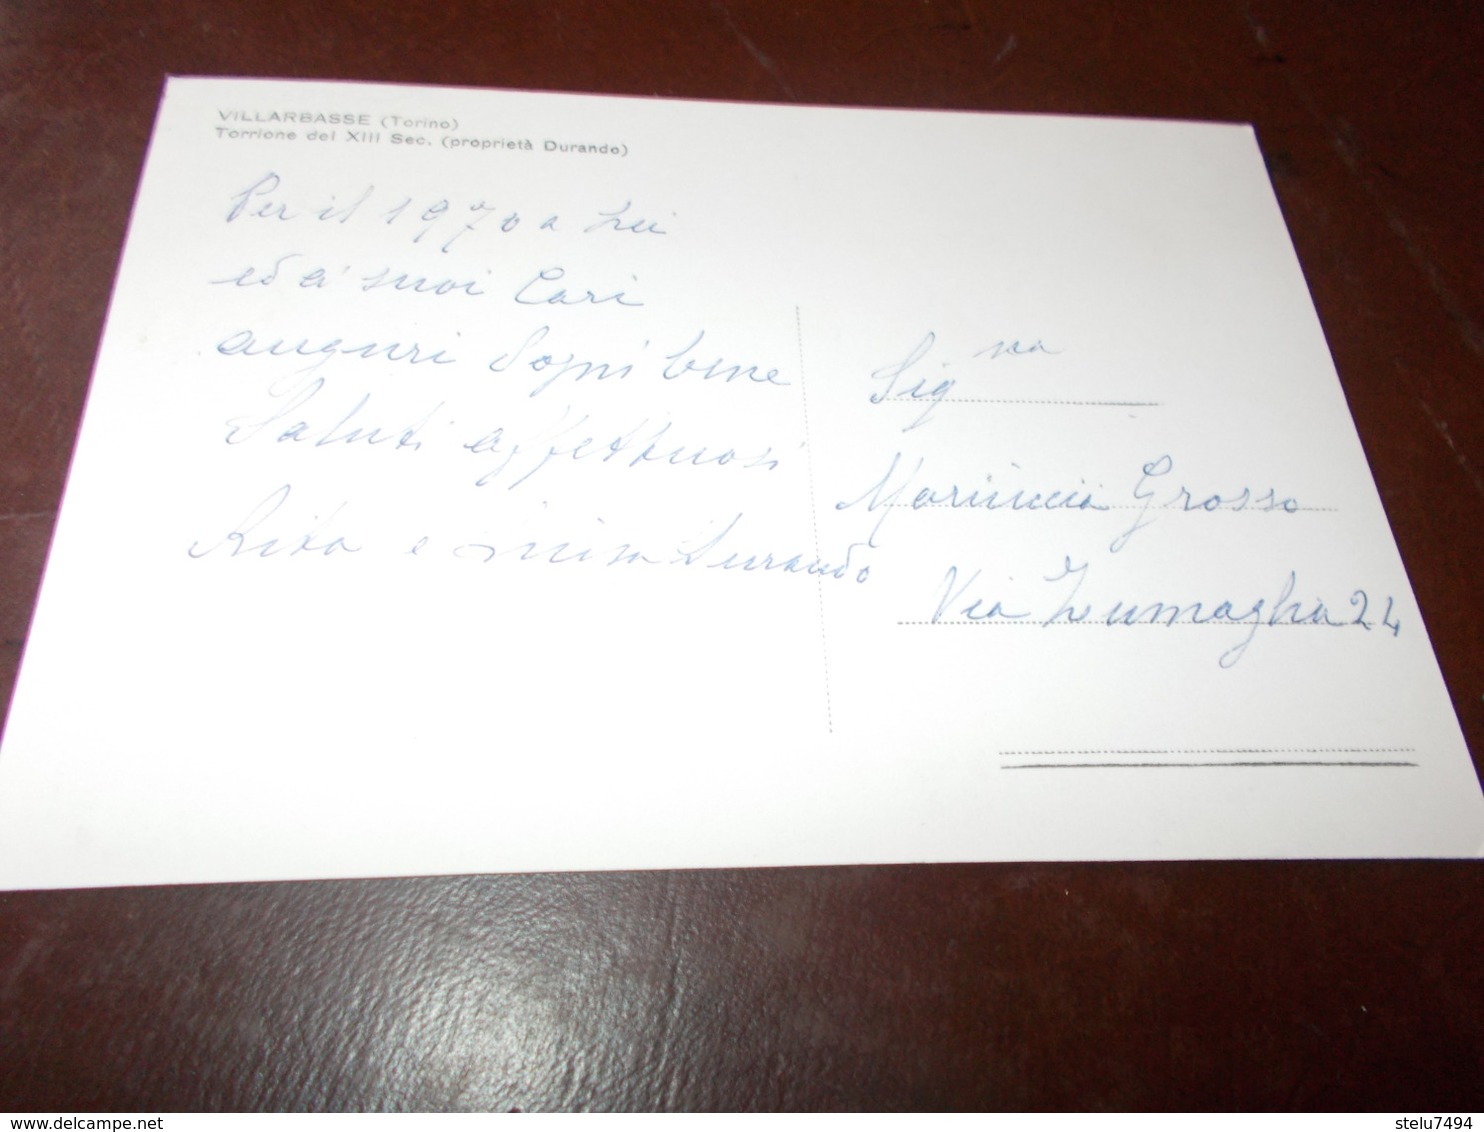 VILLARBASSE (Torino)
Torrione del XIII Sec. (proprietà Durando)
Per il 1970 a Lei
ed ai suoi Cari
auguri d'ogni bene
Saluti affettuosi
Rita e Luisa Durando
Sig.na
Mariuccia Grosso
Via Zumaglia 24
www.delcampe.net
stelu7494